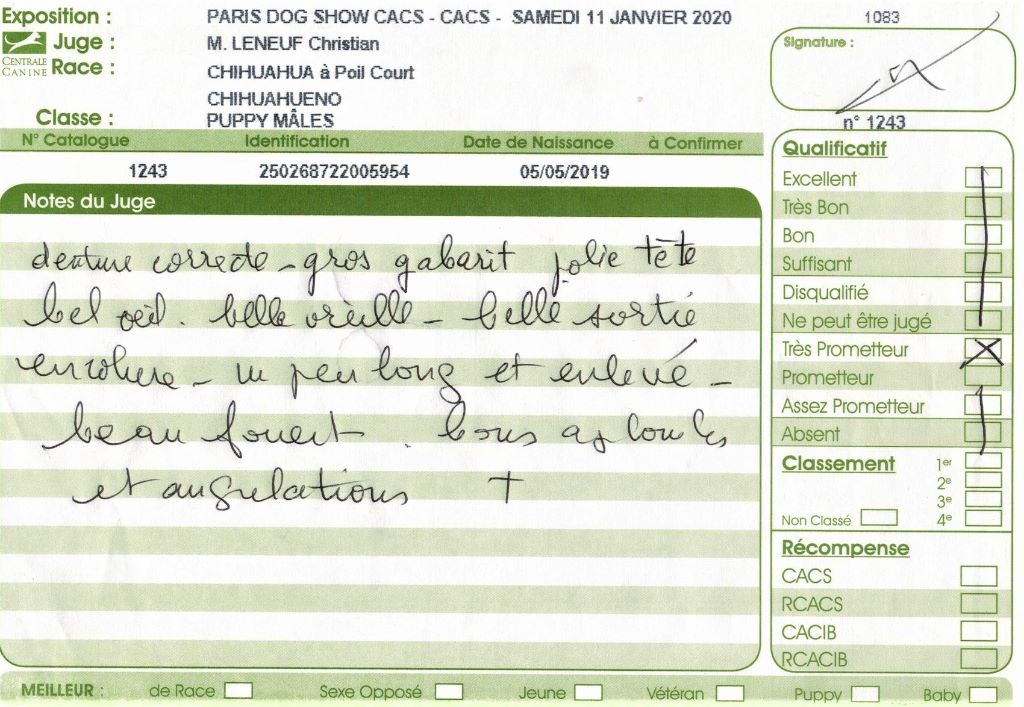 Exposition : PARIS DOG SHOW CACS - CACS - SAMEDI 11 JANVIER 2020
Juge : M. LENEUF Christian
CENTRALE CANINE
Race : CHIHUAHUA à Poil Court
CHIHUAHUENO
Classe : PUPPY MÂLES
1083
Signature :
n° 1243
N° Catalogue Identification Date de Naissance à Confirmer
1243 250268722005954 05/05/2019
Notes du Juge
denture correcte - gros gabarit jolie tête
bel oeil. belle oreille - belle sortie
encolure - un peu long et enlevé -
beau fouet. bons aplombs
et angulations +
Qualificatif
Excellent
Très Bon
Bon
Suffisant
Disqualifié
Ne peut être jugé
Très Prometteur X
Prometteur
Assez Prometteur
Absent
Classement 1er
2e
3e
Non Classé 4e
Récompense
CACS
RCACS
CACIB
RCACIB
MEILLEUR : de Race Sexe Opposé Jeune Vétéran Puppy Baby